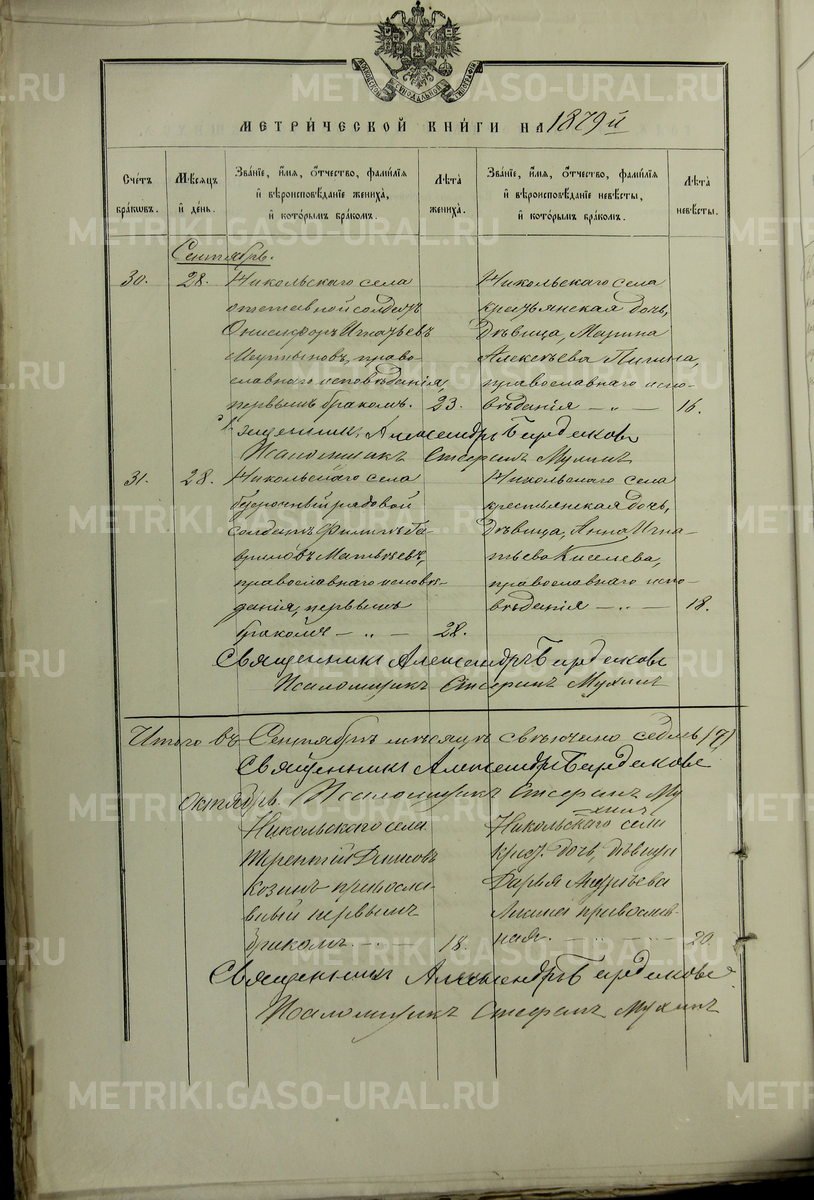 МЕТРИ́ЧЕСКОЙ КНИ́ГИ НА 1879й
Сче́тъ бра́ковъ.
Мѣсяцъ й де́нь.
Зва́нїе, и́мя, о́тчество, фами́лїя й вѣроисповѣ́данїе жениха́, й кото́рымъ бра́комъ.
Лѣта̀ жениха̀.
Зва́нїе, и́мя, о́тчество, фами́лїя й вѣроисповѣ́данїе невѣ́сты, й кото́рымъ бра́комъ.
Лѣта̀ невѣ́сты.
Сентябрь.
30. 28. Никольскаго села
отставной солдатъ
Онисифоръ Игнатьевъ
право-
славнаго исповѣданія,
первымъ бракомъ. 23.
Никольскаго села
крестьянская дочь,
дѣвица, Марина
Алексѣева
православнаго испо-
вѣданія — „ — 16.
Священникъ Александръ Бирдюковъ
Псаломщикъ Стефанъ Мухинъ
31. 28. Никольскаго села
безсрочный рядовой
солдатъ Филиппъ Га-
вриловъ Матвѣевъ,
православнаго исповѣ-
данія, первымъ
бракомъ — „ — 28.
Никольскаго села
крестьянская дочь,
дѣвица, Анна Игна-
тьева Киселева,
православнаго испо-
вѣданія — „ — 18.
Священникъ Александръ Бирдюковъ
Псаломщикъ Стефанъ Мухинъ
Итого въ Сентябрѣ мѣсяцѣ свѣнчано седмь (7)
Священникъ Александръ Бирдюковъ
Октябрь. Псаломщикъ Стефанъ Му
хинъ
Никольскаго села
Терентій
Козинъ правосла-
вный первымъ
бракомъ — 18.
Никольскаго села
крест. дочь, дѣвица
Дарья Андреева
православ-
ная. 20.
Священникъ Александръ Бирдюковъ
Псаломщикъ Стефанъ Мухинъ
METRIKI.GASO-URAL.RU